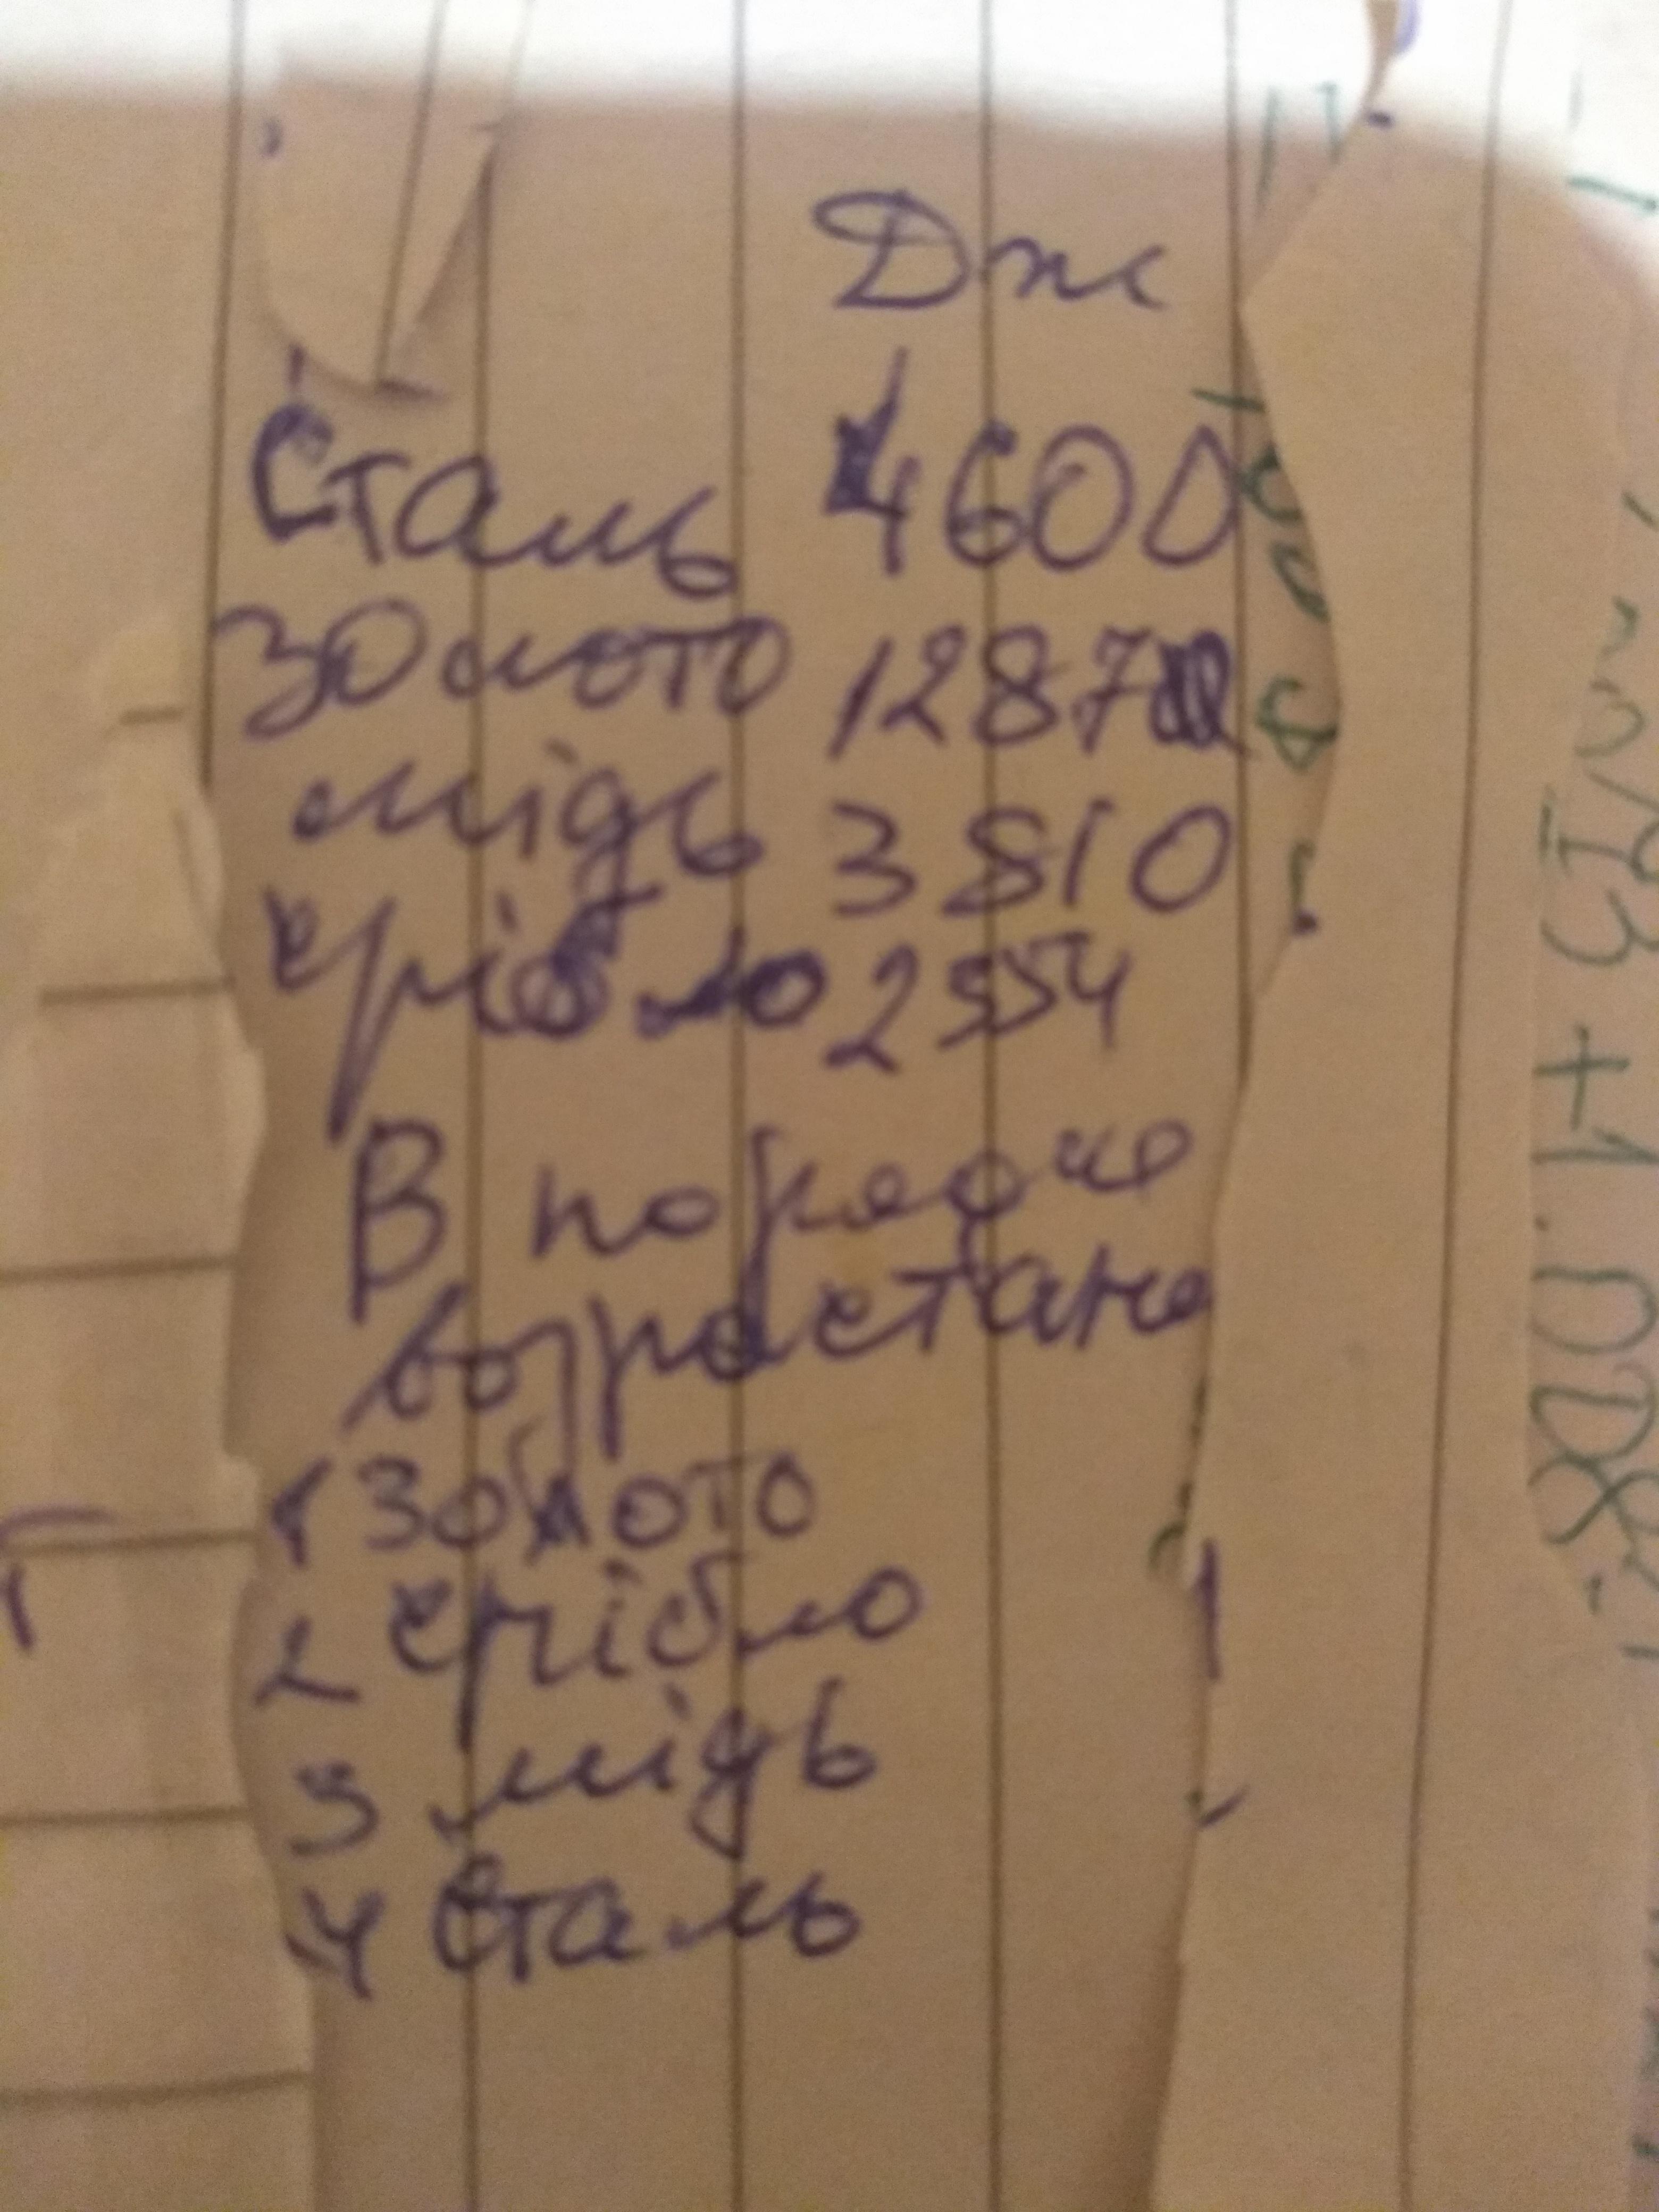 Дж
Сталь 4600
Золото 1287
мідь 3810
срібло 2554
В порядке
возрастане
1 Золото
2 срібло
3 мідь
4 Сталь